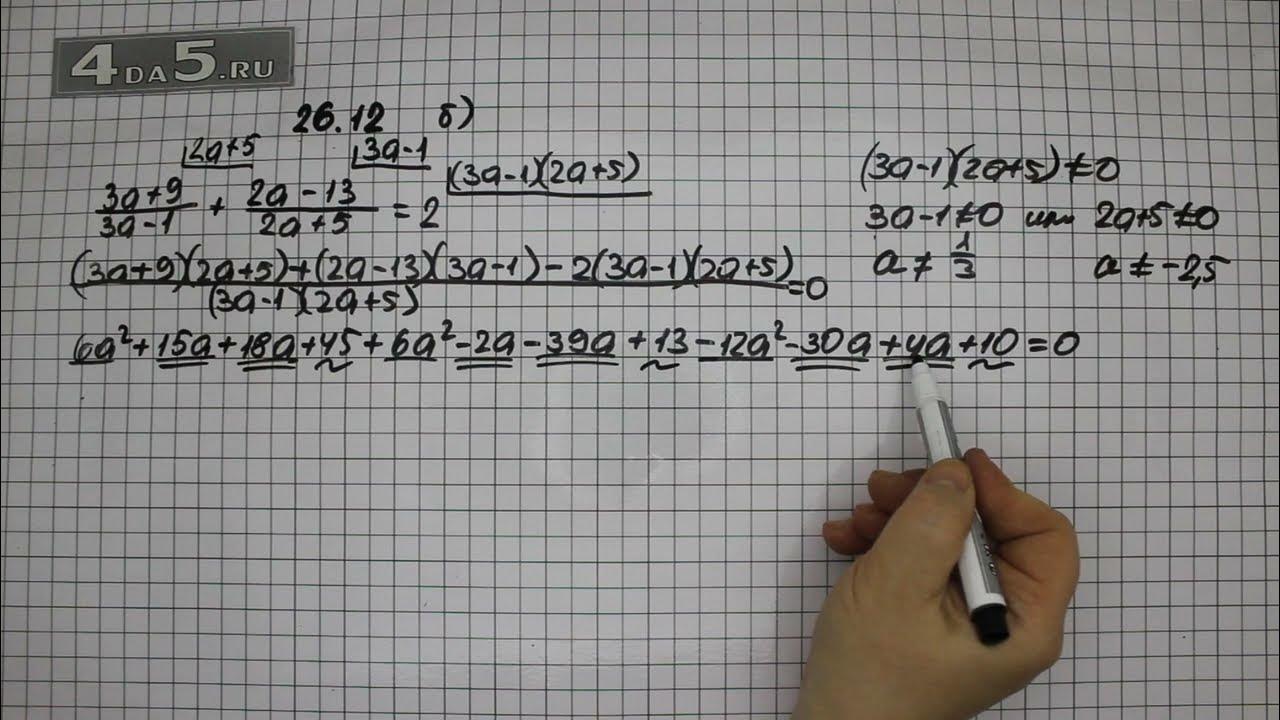 4DA5.RU
26.12 б)
2a+5 3a-1 (3a-1)(2a+5)
3a+9/3a-1 + 2a-13/2a+5 = 2
(3a+9)(2a+5)+(2a-13)(3a-1)-2(3a-1)(2a+5)/(3a-1)(2a+5) = 0
6a²+15a+18a+45+6a²-2a-39a+13-12a²-30a+4a+10=0
(3a-1)(2a+5)≠0
3a-1≠0 или 2a+5≠0
a≠1/3 a≠-2,5